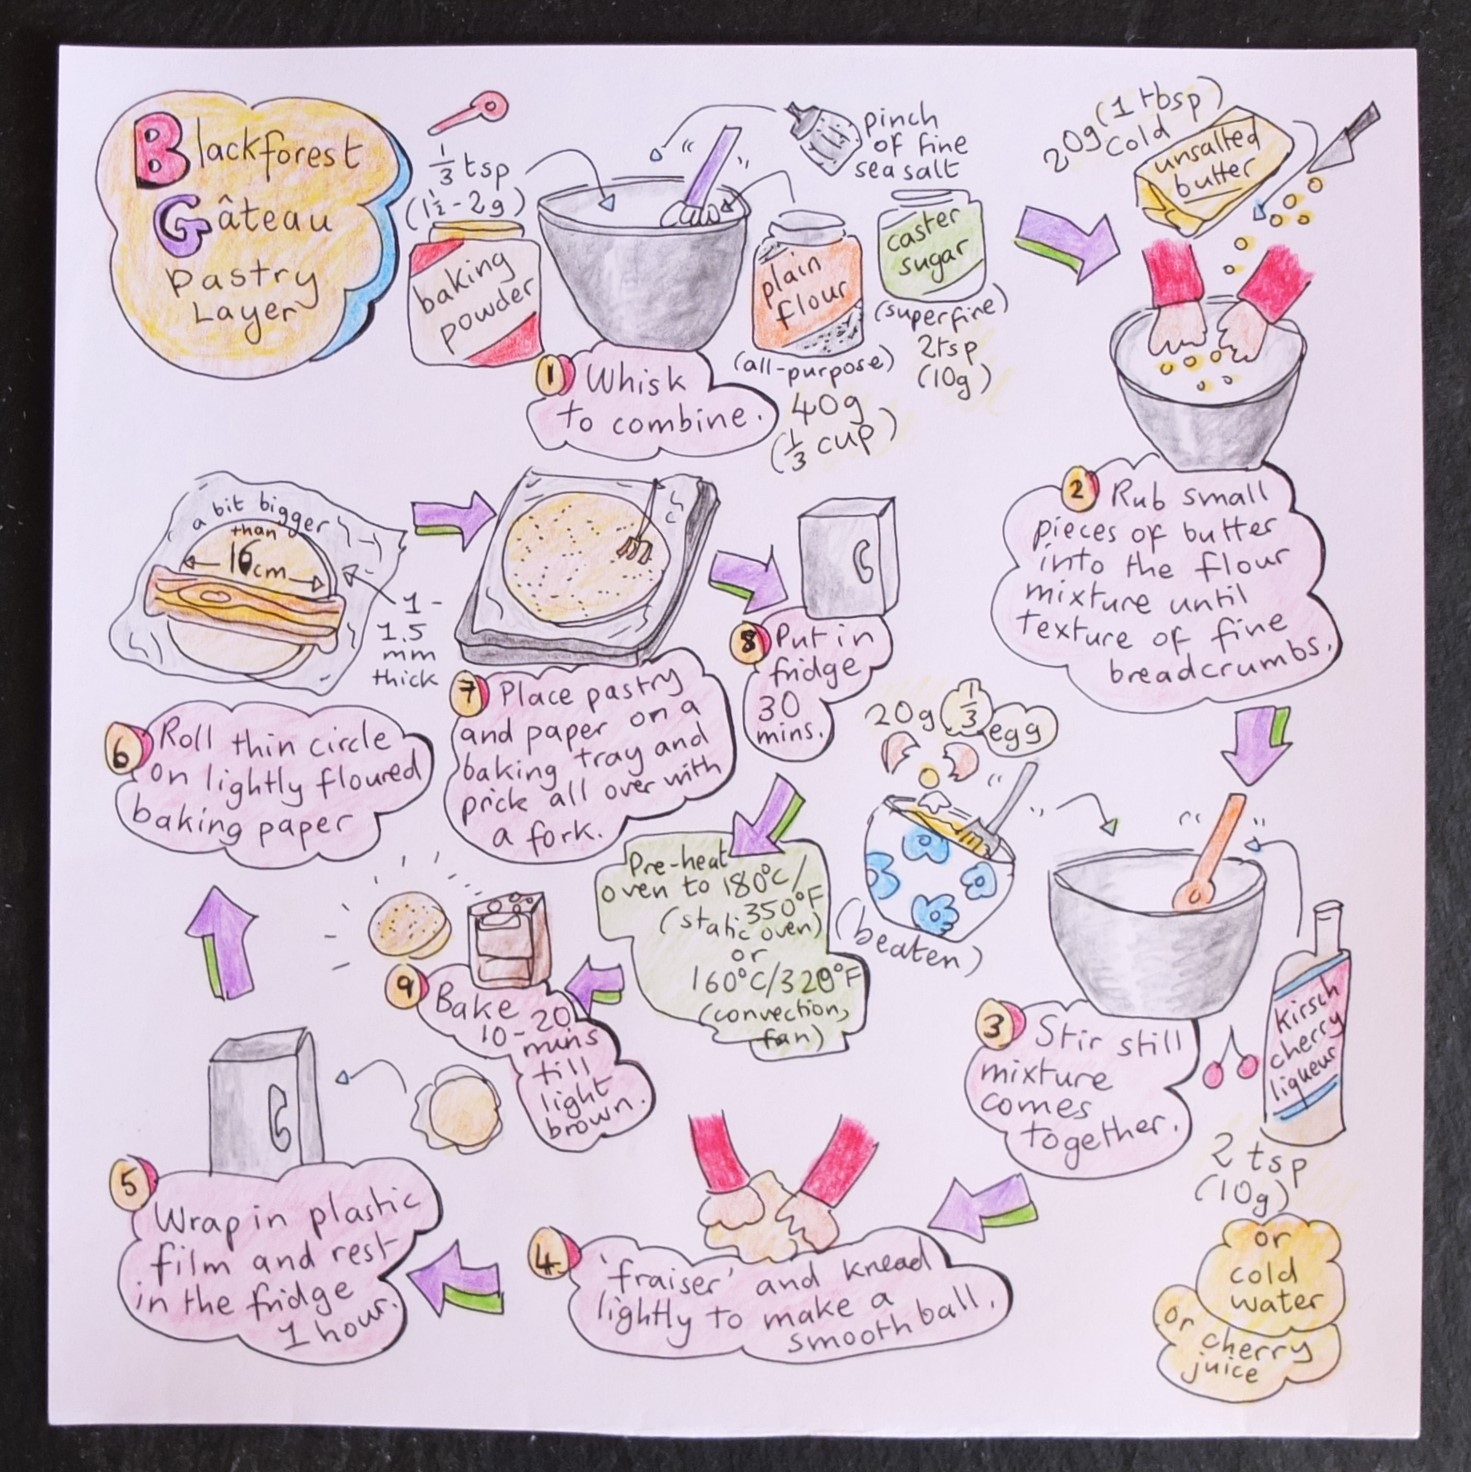 Blackforest
Gâteau
Pastry
Layer
1/3 tsp
(1 1/2 - 2g)
baking
powder
pinch
of fine
sea salt
plain
flour
(all-purpose)
40g
(1/3 cup)
caster
sugar
(superfine)
2tsp
(10g)
1 Whisk
to combine.
20g (1 tbsp)
cold
unsalted
butter
2 Rub small
pieces of butter
into the flour
mixture until
texture of fine
breadcrumbs.
20g 1/3
egg
(beaten)
kirsch
cherry
liqueur
2 tsp
(10g)
or
cold
water
or cherry
juice
3 Stir still
mixture
comes
together.
4 'fraiser' and knead
lightly to make a
smooth ball.
5 Wrap in plastic
film and rest
in the fridge
1 hour.
a bit bigger
than
16cm
1-
1.5
mm
thick
6 Roll thin circle
on lightly floured
baking paper
7 Place pastry
and paper on a
baking tray and
prick all over with
a fork.
8 Put in
fridge
30
mins.
Pre-heat
oven to 180°C/
350°F
(static oven)
or
160°C/320°F
(convection,
fan)
9 Bake
10-20
mins
till
light
brown.